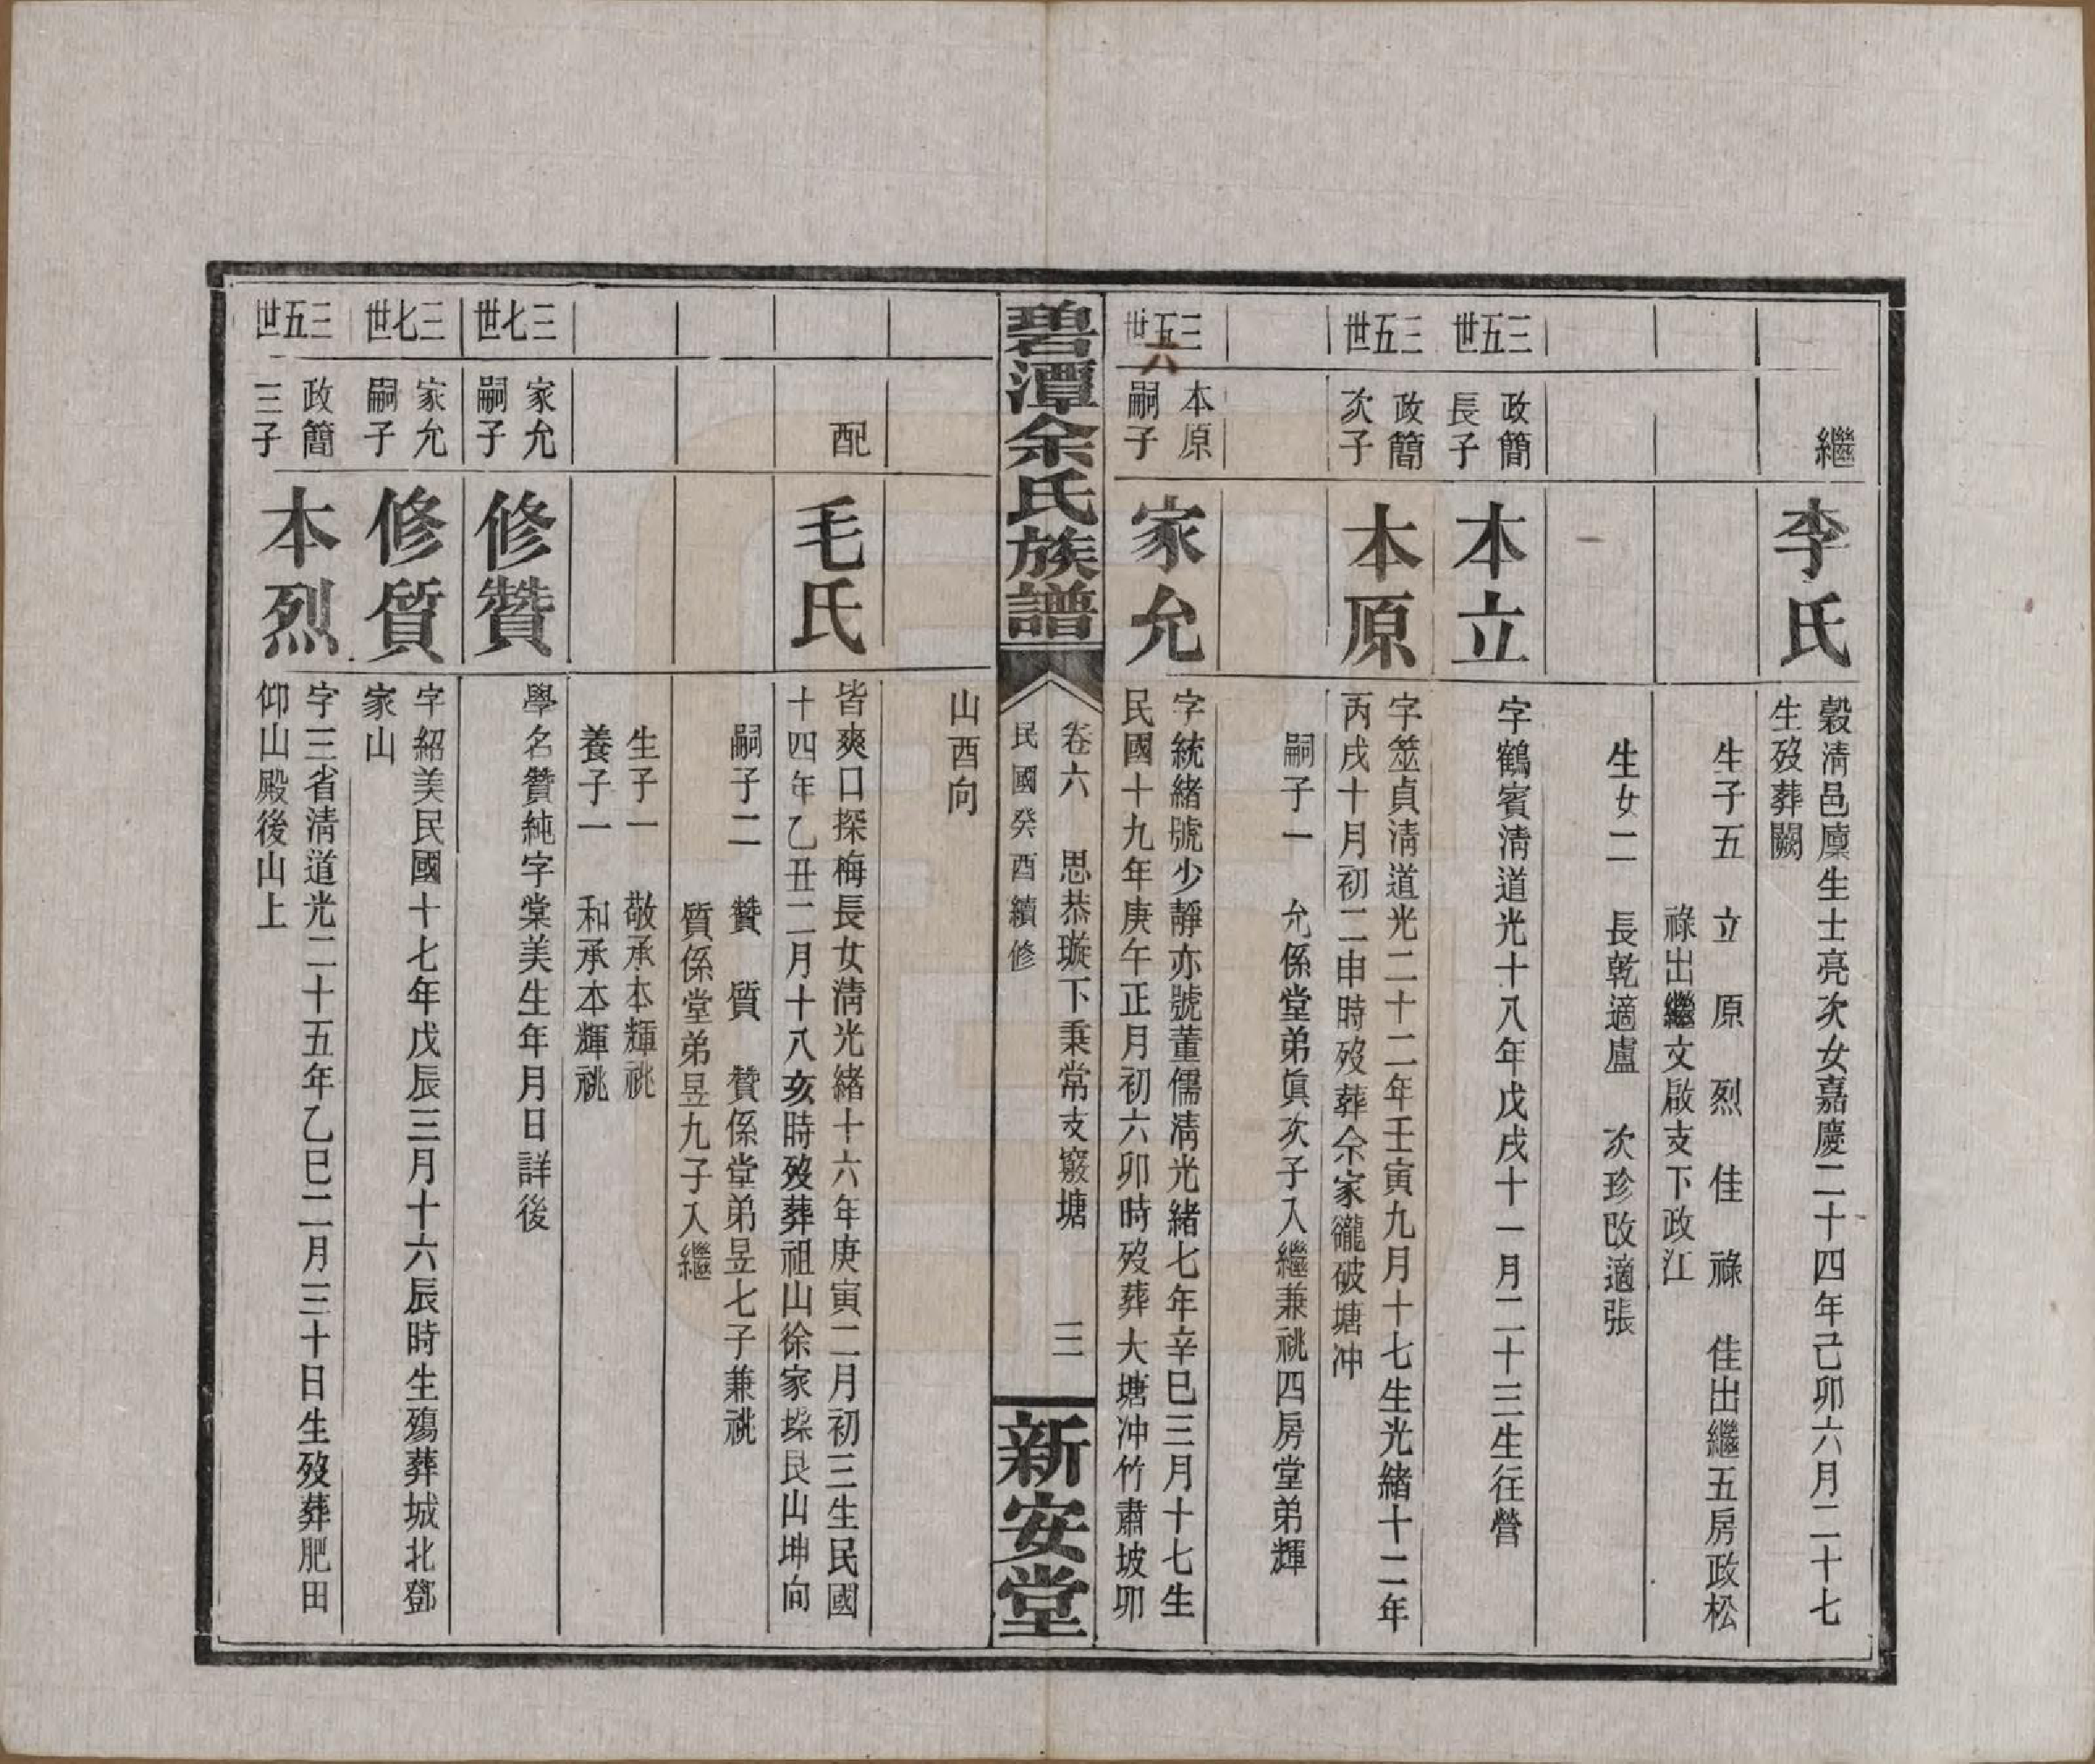 繼
李氏
穀清邑廩生士亮次女嘉慶二十四年己卯六月二十七
生歿葬闕
生子五　立　原　烈　佳　祿　佳出繼五房政松
祿出繼文啟支下政江
生女二　長乾適盧　次珍改適張
三五世
政簡
長子
本立
字鶴賓清道光十八年戊戌十一月二十三生往營
三五世
政簡
次子
本原
字筮貞清道光二十二年壬寅九月十七生光緒十二年
丙戌十月初二申時歿葬余家礲破塘冲
嗣子一　允係堂弟眞次子入繼兼祧四房堂弟輝
三五六世
本原
嗣子
家允
字統緒號少靜亦號董儒清光緒七年辛巳三月十七生
民國十九年庚午正月初六卯時歿葬大塘冲竹肅坡卯
碧潭余氏族譜
卷六　思恭璇下秉常支竅塘
民國癸酉續修
三
新安堂
山酉向
配
毛氏
皆爽口探梅長女清光緒十六年庚寅二月初三生民國
十四年乙丑二月十八亥時歿葬祖山徐家垛艮山坤向
嗣子二　贊　質　贊係堂弟昱七子兼祧
質係堂弟昱九子入繼
生子一　敬承本輝祧
養子一　和承本輝祧
三七世
家允
嗣子
修贊
學名贊純字棠美生年月日詳後
三七世
家允
嗣子
修質
字紹美民國十七年戊辰三月十六辰時生殤葬城北鄧
家山
三五世
政簡
三子
本烈
字三省清道光二十五年乙巳二月三十日生歿葬肥田
仰山殿後山上